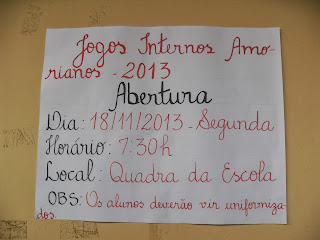 Jogos Internos Amo-
rianos - 2013
Abertura
Dia: 18/11/2013 - Segunda
Horário: 7:30h
Local: Quadra da Escola
OBS: Os alunos deverão vir uniformiza
dos.